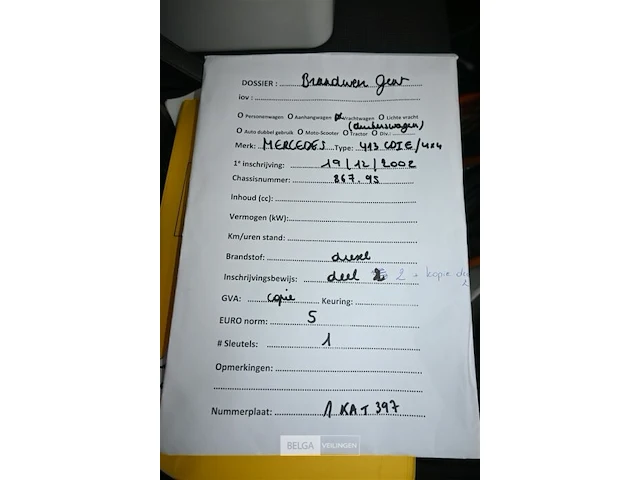 DOSSIER : Brandweer Gent
iov :
O Personenwagen O Aanhangwagen O Vrachtwagen O Lichte vracht
(duikerswagen)
O Auto dubbel gebruik O Moto-Scooter O Tractor O Div.:
Merk: MERCEDES Type: 413 CDIE/4x4
1e inschrijving: 19/12/2002
Chassisnummer: 867.95
Inhoud (cc):
Vermogen (kW):
Km/uren stand:
Brandstof: diesel
Inschrijvingsbewijs: deel 2 + kopie
GVA: copie Keuring:
EURO norm: 5
# Sleutels: 1
Opmerkingen:
Nummerplaat: 1 KAT 397
BELGA VEILINGEN